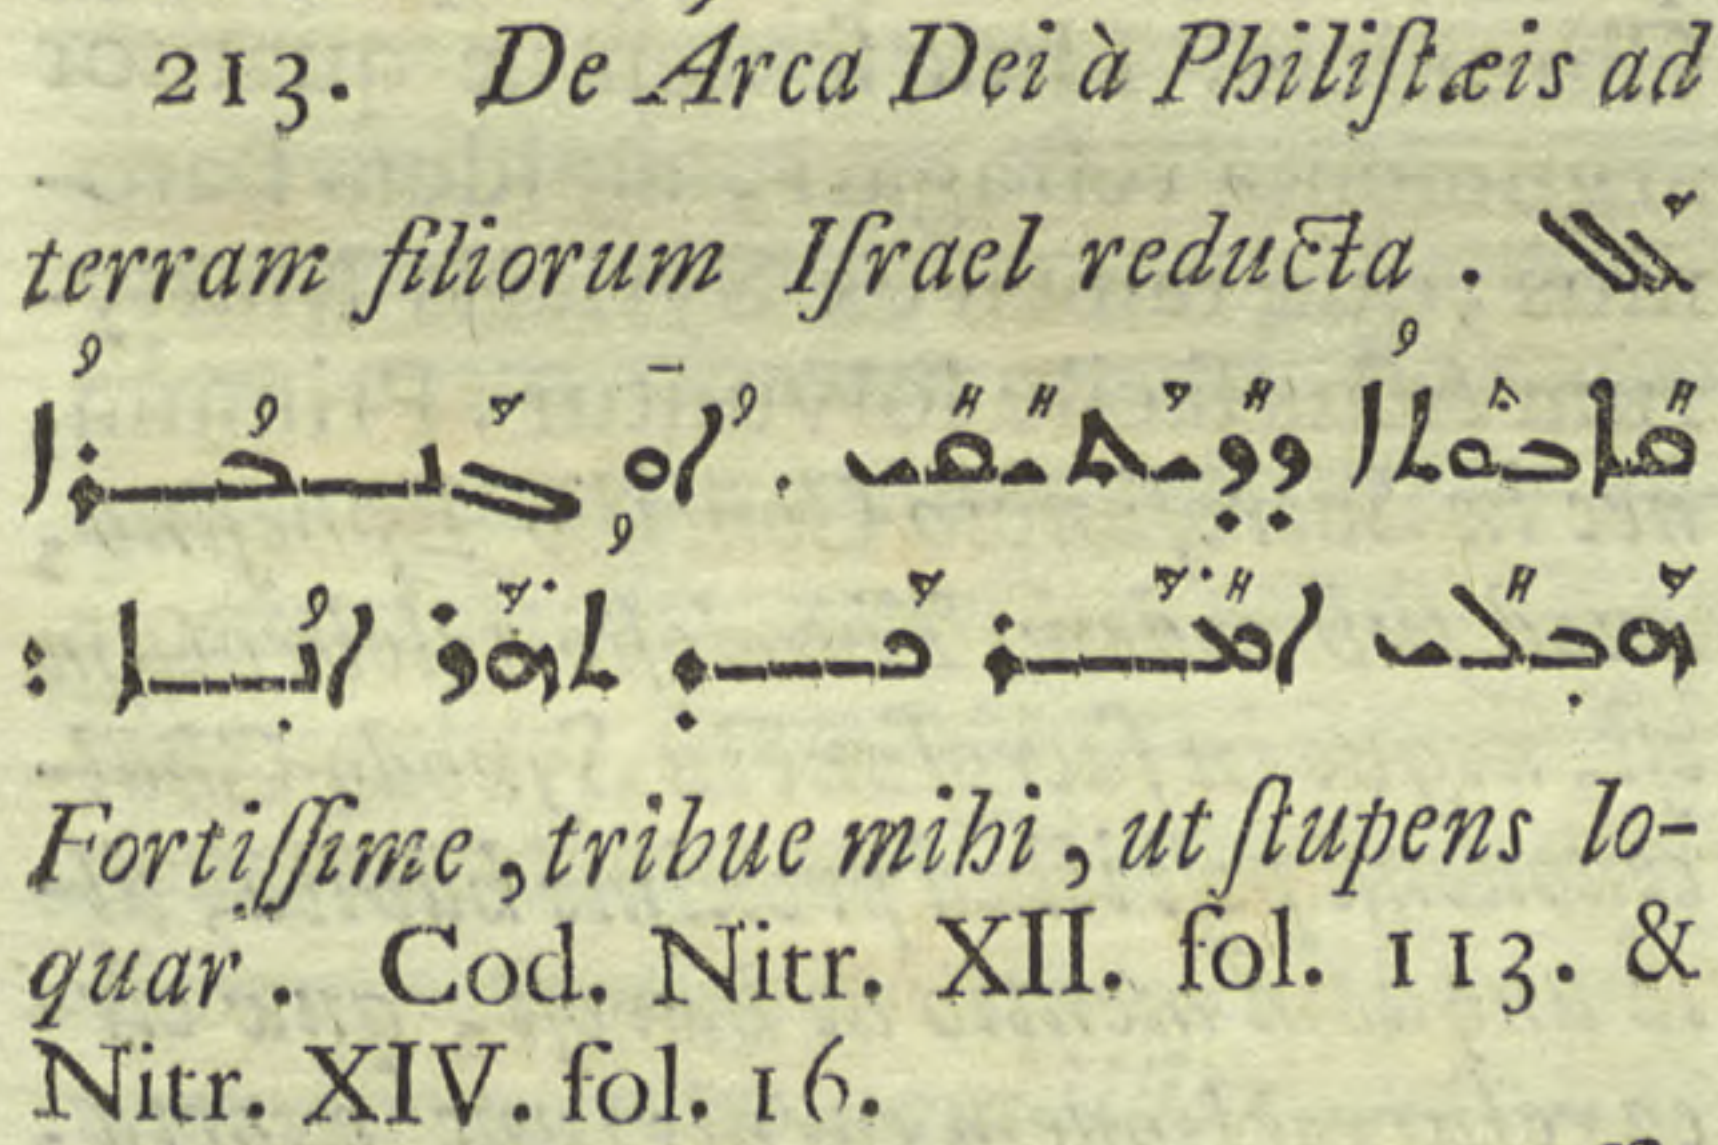 213. De Arca Dei à Philiſtæis ad
terram filiorum Iſrael reducta . ܥܰܠ
ܩܺܐܒܽܘܬܳܐ ܕܕܺܝܰܬܺܝܩܺܝ . ܐܳܘ ܓܰܢܒܳܪܳܐ
ܗܰܒ݂ܠܺܝ ܐܺܡܰܪ ܟܰܕ݂ ܬܗܰܪ ܐܳܢܐ :
Fortiſſime , tribue mihi , ut ſtupens lo-
quar . Cod. Nitr. XII. fol. 113. &
Nitr. XIV. fol. 16.